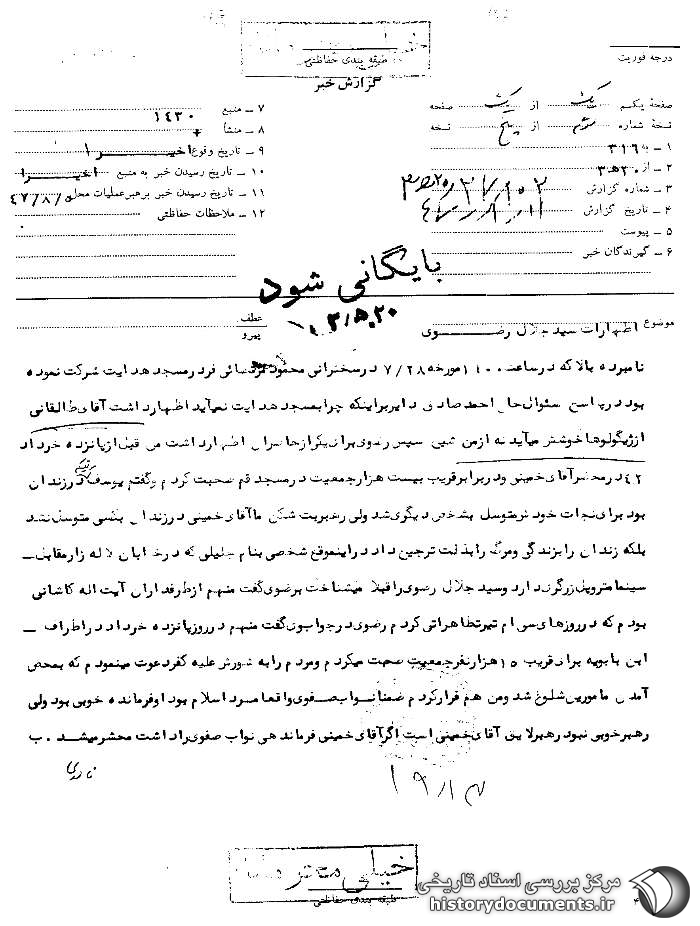 طبقه بندی حفاظتی
گزارش خبر
درجه فوریت
صفحه یکم یک از یک صفحه
نسخه شماره سوم از پنج نسخه
۱ – به ۳۱۶
۲ – از ۲۰ ه ۳
۳ – شماره گزارش
۴ – تاریخ گزارش
۵ – پیوست
۶ – گیرندگان خبر
۷ – منبع ۱۴۳۰
۸ – منشأ +
۹ – تاریخ وقوع اخیرا
۱۰ – تاریخ رسیدن خبر به منبع اخیرا
۱۱ – تاریخ رسیدن خبر برهبر عملیات محل ۴۷/۸/۵
۱۲ – ملاحظات حفاظتی
بایگانی شود
موضوع اظهارات سید جلال رضوی
عطف
پیرو
نامبرده بالا که در ساعت ۱۱۰۰ مورخه ۷/۲۸ در سخنرانی فرد رمسجد هدایت شرکت نموده
بود در پاسخ سئوال حاج احمد صادق دایر براینکه چرا بمسجد هدایت نمیآید اظهار داشت آقای طالقانی
از ژیگولوها خوشتر میآید نه از من سپس رضوی برای یکی از حاضران اظهار داشت من قبل از پانزده خرداد
۴۲ در محضر آقای خمینی ودر برابر قریب بیست هزار جمعیت در مسجد قم صحبت کردم وگفتم یوسف در زندان
بود برای نجات خود متوسل بشخص دیگری شد ولی رهبر بت شکن ما آقای خمینی در زندان بکسی متوسل نشد
بلکه زندان را بزندگی ومرگ را بذلت ترجیح داد در اینموقع شخصی بنام جلیلی که در خیابان لاله زار مقابل
سینما متروپل زرگری دارد وسید جلال رضوی را قبلا میشناخت برضوی گفت منهم از طرفداران آیت اله کاشانی
بودم که در روزهای سی ام تیر تظاهراتی کردم رضوی در جواب وی گفت منهم در روز پانزده خرداد در اطراف
ابن بابویه برای قریب ۱۵ هزار نفر جمعیت صحبت میکردم ومردم را به شورش علیه کفر دعوت مینمودم که بمحض
آمدن مامورین شلوغ شد ومن هم فرار کردم ضمنا نواب صفوی واقعا مرد اسلام بود او فرمانده خوبی بود ولی
رهبر خوبی نبود رهبر لایق آقای خمینی است اگر آقای خمینی فرماندهی نواب صفوی را داشت محشر میشد . ب
نادری
۱۹/۸/۳
خیلی محرمانه
طبقه بندی حفاظتی
مرکز بررسی اسناد تاریخی
historydocuments.ir